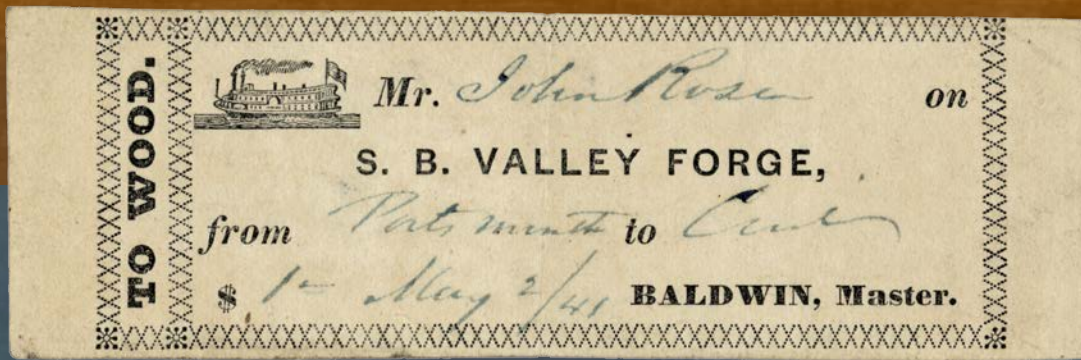 TO WOOD.
Mr. John Rosen on
S. B. VALLEY FORGE,
from Portsmouth to
$ 1 May 2/41 BALDWIN, Master.